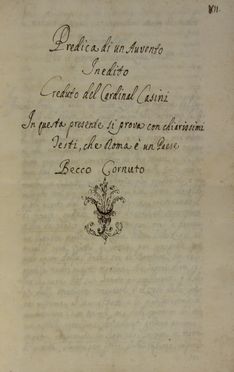 101.
Predica di un Auvento
Inedito
Creduto del Cardinal Casini
In questa presente si prova con chiarissimi
Testi, che Roma è un Paese
Becco Cornuto